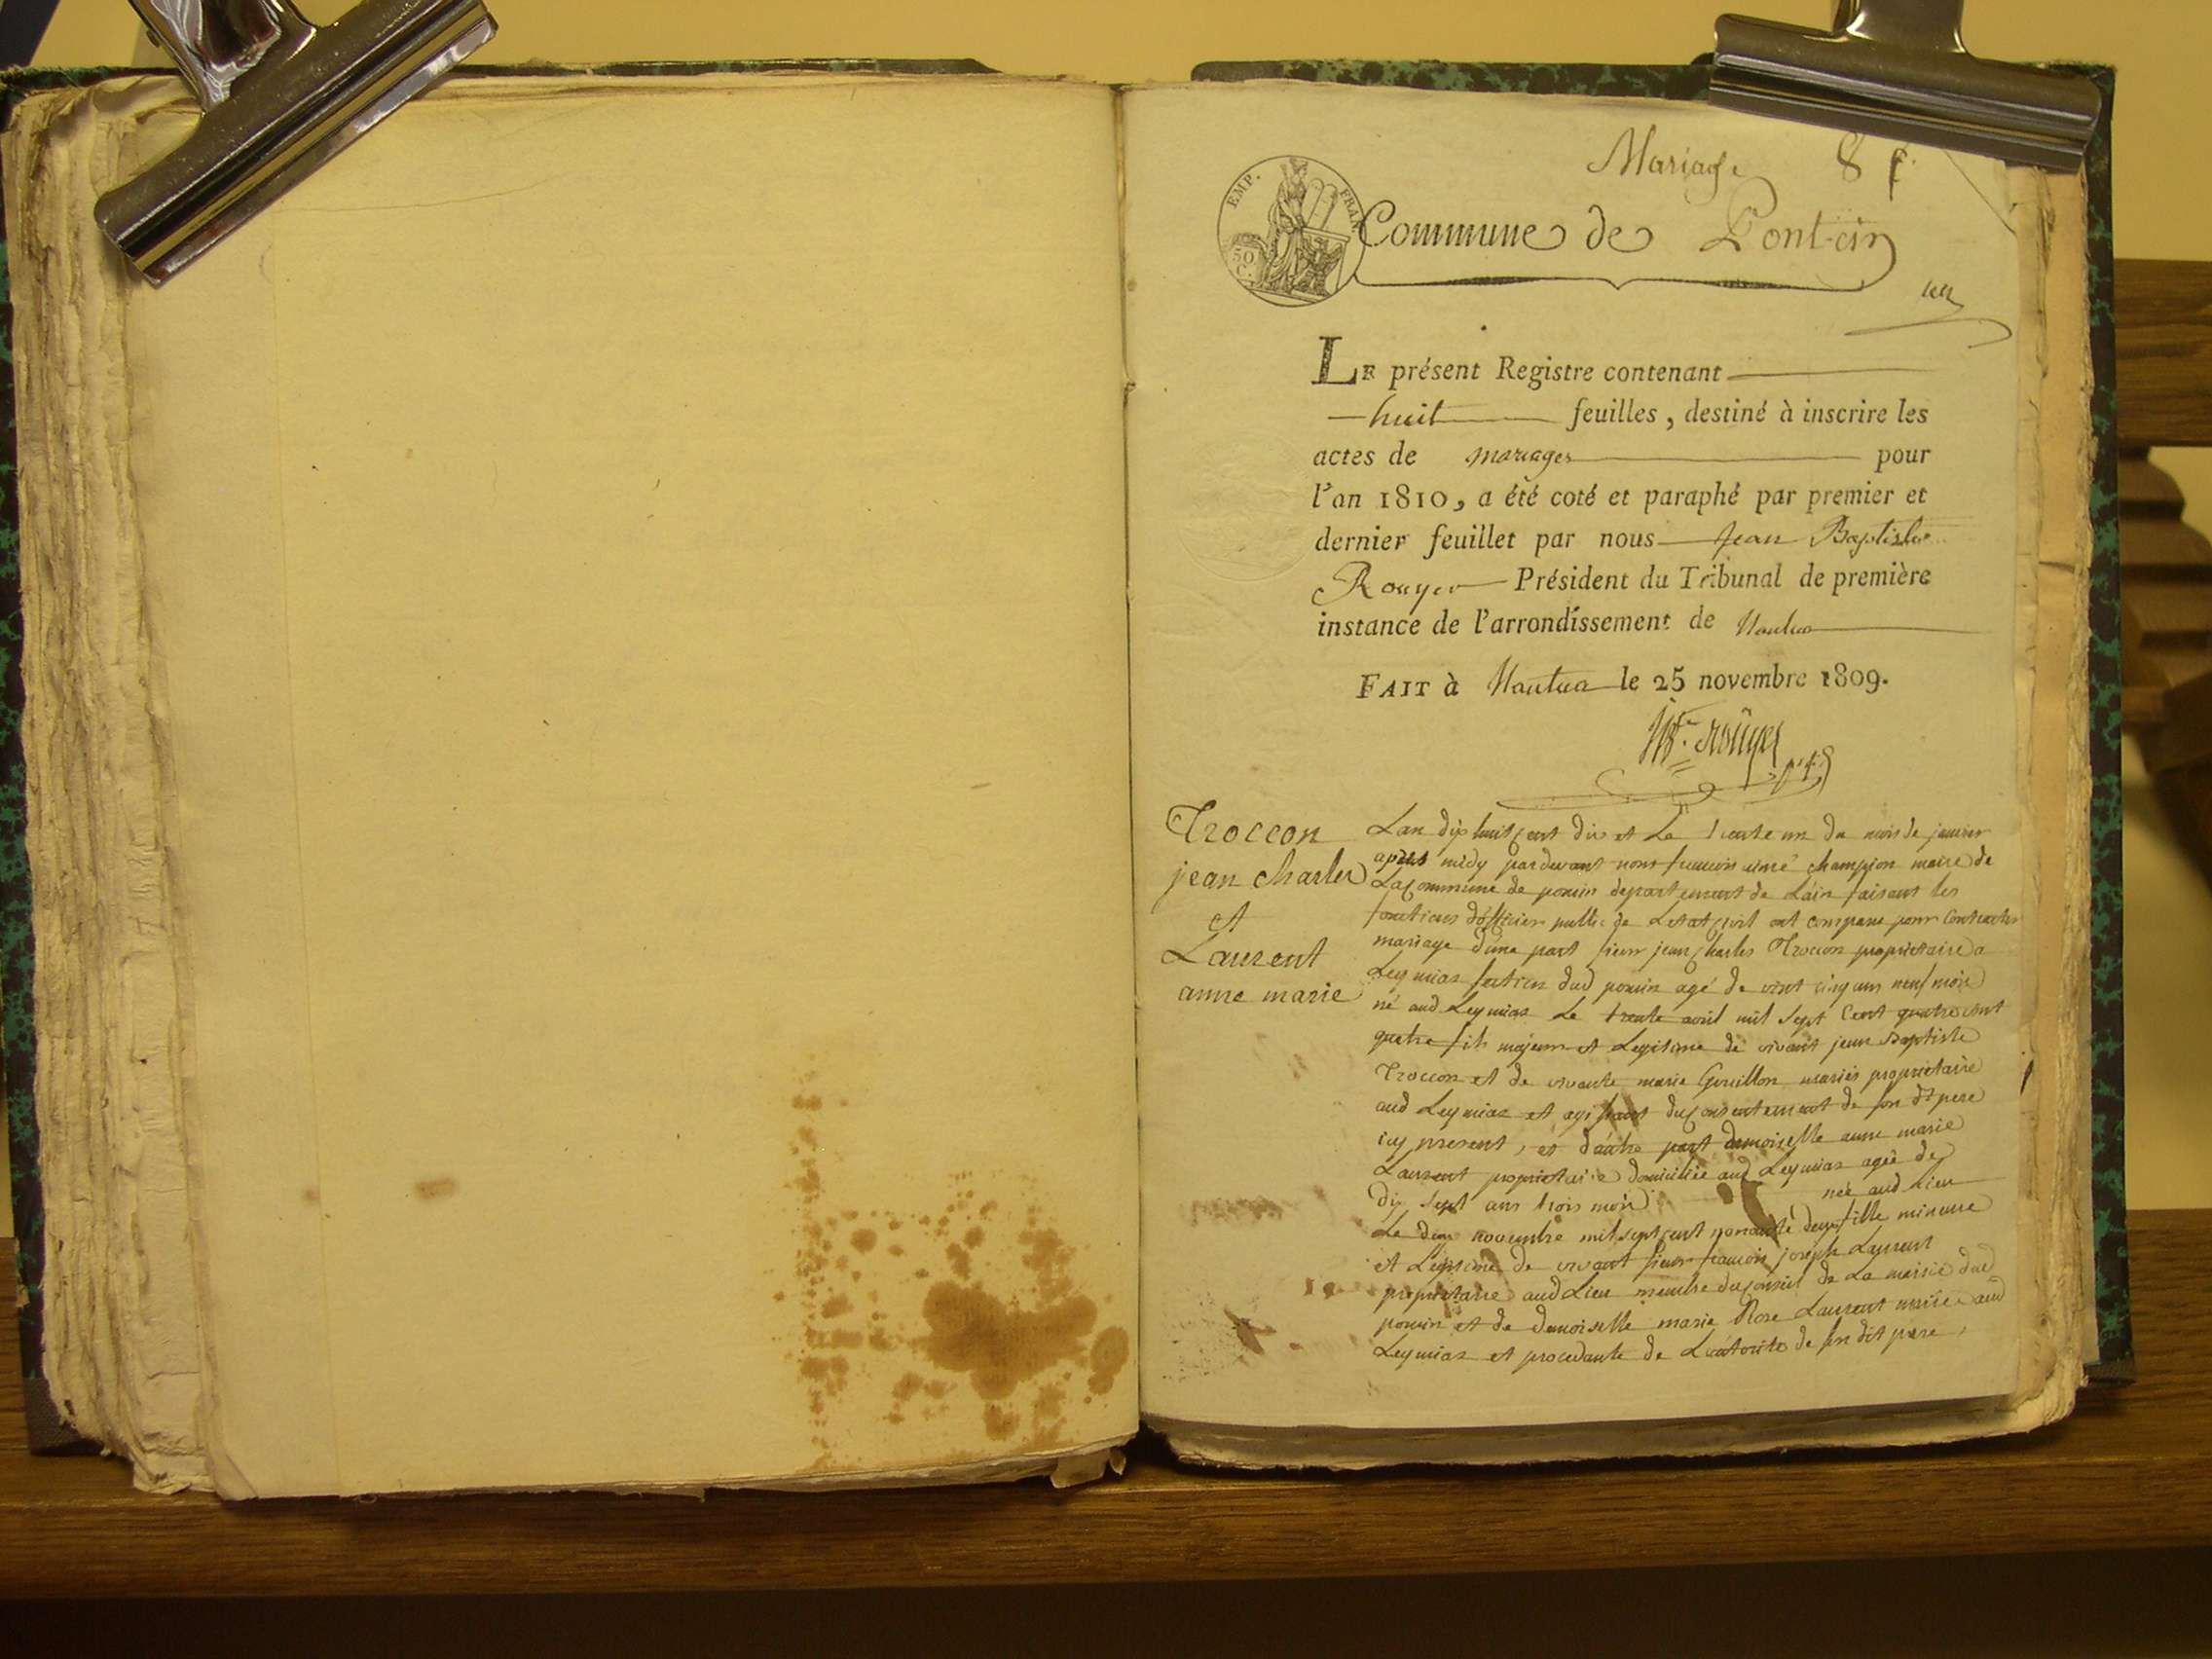 Mariage 8 f.
EMP. FRAN.
50 C.
Commune de Pont-cin
1er
LE présent Registre contenant
huit feuilles, destiné à inscrire les
actes de mariages pour
l'an 1810, a été coté et paraphé par premier et
dernier feuillet par nous Jean Baptiste
Rouyer Président du Tribunal de première
instance de l'arrondissement de Nantua
FAIT à Nantua le 25 novembre 1809.
JBte Roüyer
Troccon
jean charles
et
Laurent
anne marie
Lan dix huit cent dix et Le trente un du mois de janvier
après midy pardevant nous francois aimé champion maire de
La commune de poncin departement de Lain faisant les
fonctions d'officier public de Letat civil ont comparu pour Contracter
mariage d'une part sieur jean charles Troccon proprietaire a
Leymiaz section dud poncin agé de vint cinq ans neuf mois
né aud Leymiaz Le trente avril mil sept Cent quatre vint
quatre fils majeur et Legitime de vivant jean Baptiste
Troccon et de vivante marie Gouillon mariés proprietaire
aud Leymiaz et agissant du consentement de son dt pere
icy present, et dautre part demoiselle anne marie
Laurent proprietaire domiciliée aud Leymiaz agée de
dix sept ans trois mois née aud Lieu
Le deux novembre mil sept cent nonante deux fille mineure
et Legitime de vivant sieur francois joseph Laurent
proprietaire aud Lieu membre du conseil de La mairie dud
poncin et de demoiselle marie Rose Laurent mariés aud
Leymiaz et procedante de Lautorité de son dit pere,